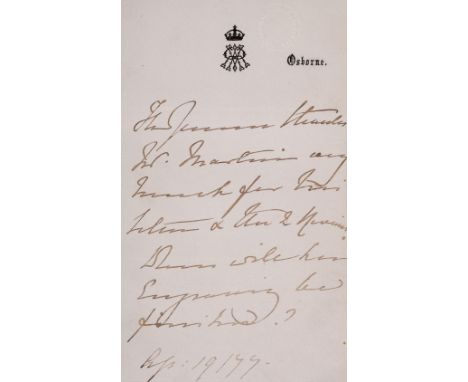 Osborne.
The Queen thanks
Mr. Martin very
much for his
letter & the 2
When will his
Engraving be
finished?
Ap: 19/77.